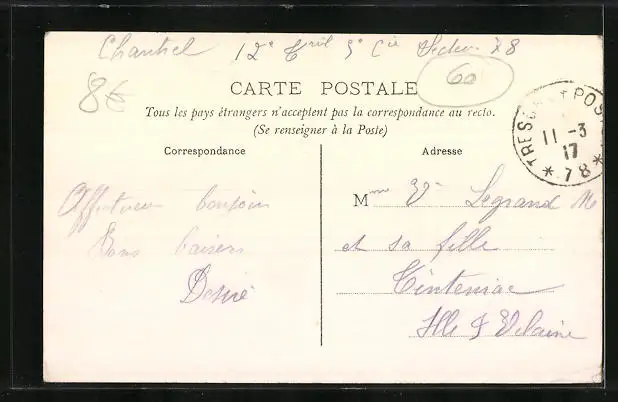 12e 5e Cie Secteur 78
8€
60
CARTE POSTALE
Tous les pays étrangers n'acceptent pas la correspondance au recto.
(Se renseigner à la Poste)
TRESOR ET POSTES
11 -3
17
* 78 *
Correspondance
Adresse
Affectueux bonsoir
Bons baisers
Désiré
Mme Ve Legrand M
et sa fille
Tinteniac
Ille & Vilaine